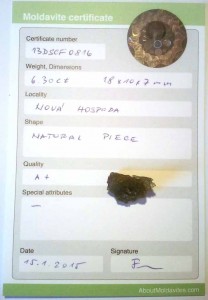 Moldavite certificate
Certificate number
13DSCF0816
Weight, Dimensions
6.30ct 18x10x7mm
Locality
NOVÁ HOSPODA
Shape
NATURAL PIECE
Quality
A+
Special attributes
—
Date
Signature
15.1.2015
AboutMoldavite.com